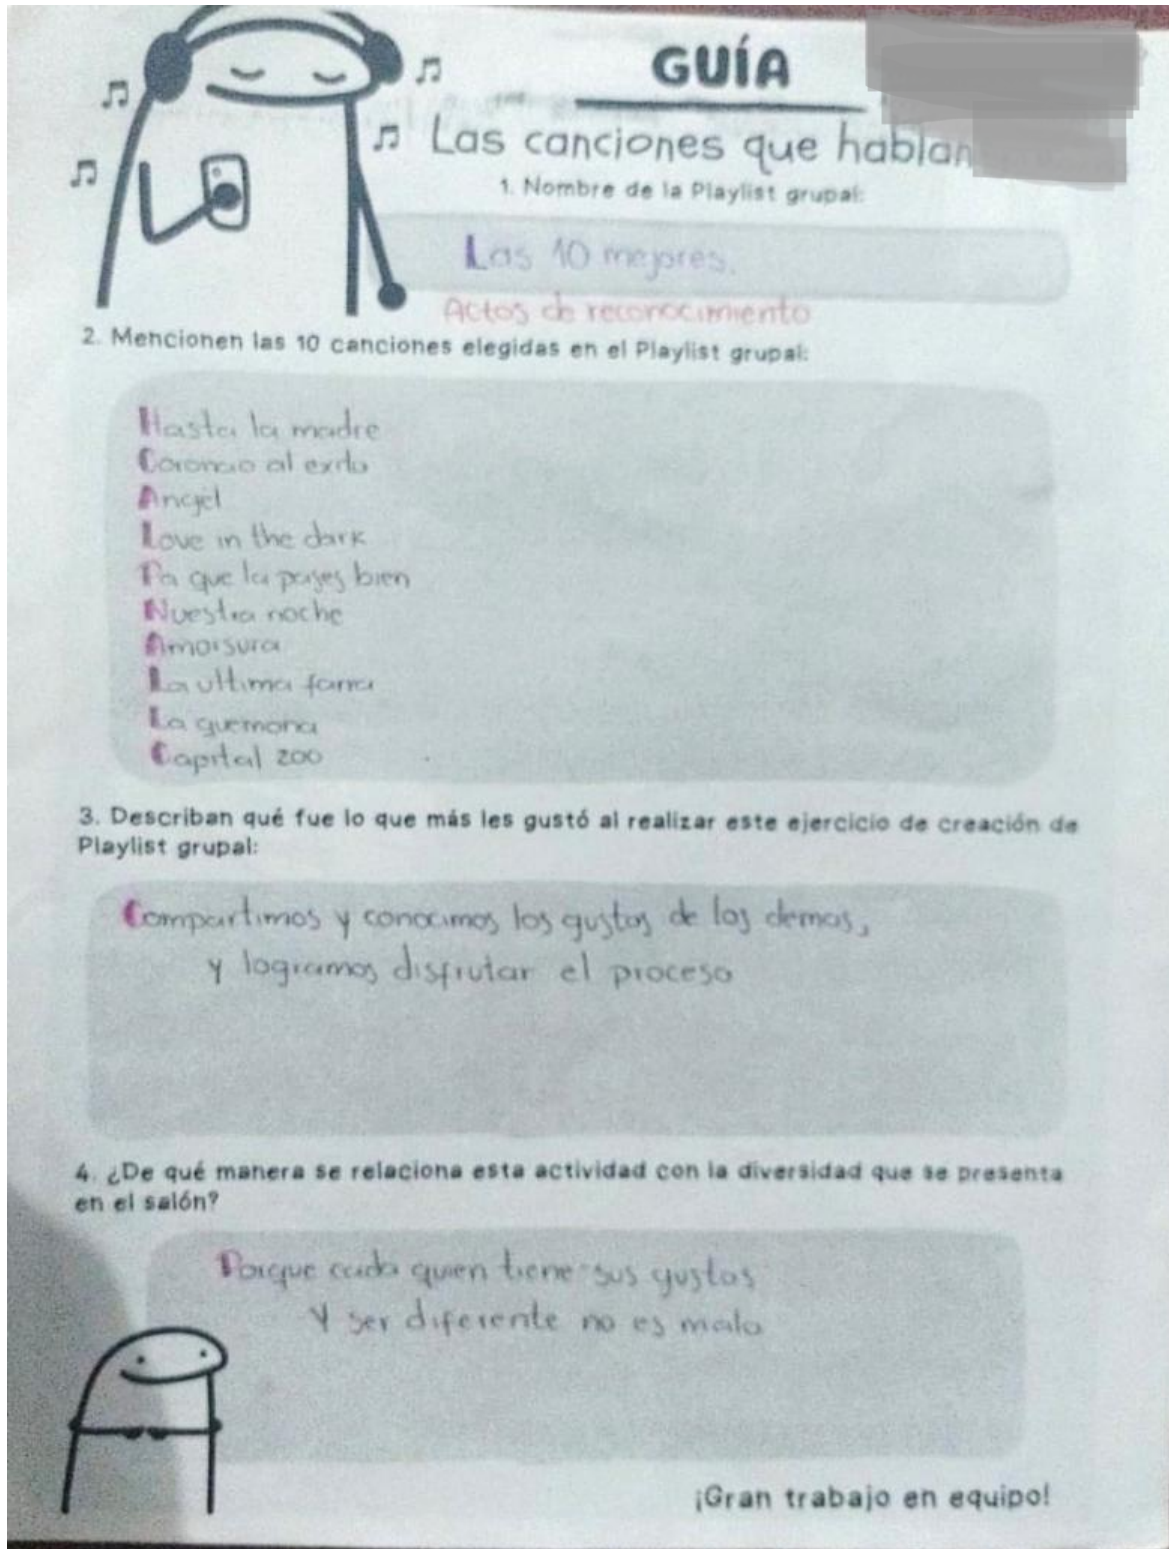 GUÍA
Las canciones que hablan
1. Nombre de la Playlist grupal:
Las 10 mejores.
Actos de reconocimiento
2. Mencionen las 10 canciones elegidas en el Playlist grupal:
Hasta la madre
al
Angel
Love in the dark
Pa que la pases bien
Nuestra noche
Amorsura
La ultima farra
La quemona
Capital zoo
3. Describan qué fue lo que más les gustó al realizar este ejercicio de creación de
Playlist grupal:
Compartimos y conocimos los gustos de los demas,
y logramos disfrutar el proceso
4. ¿De qué manera se relaciona esta actividad con la diversidad que se presenta
en el salón?
Porque cada quien tiene sus gustos
Y ser diferente no es malo
¡Gran trabajo en equipo!